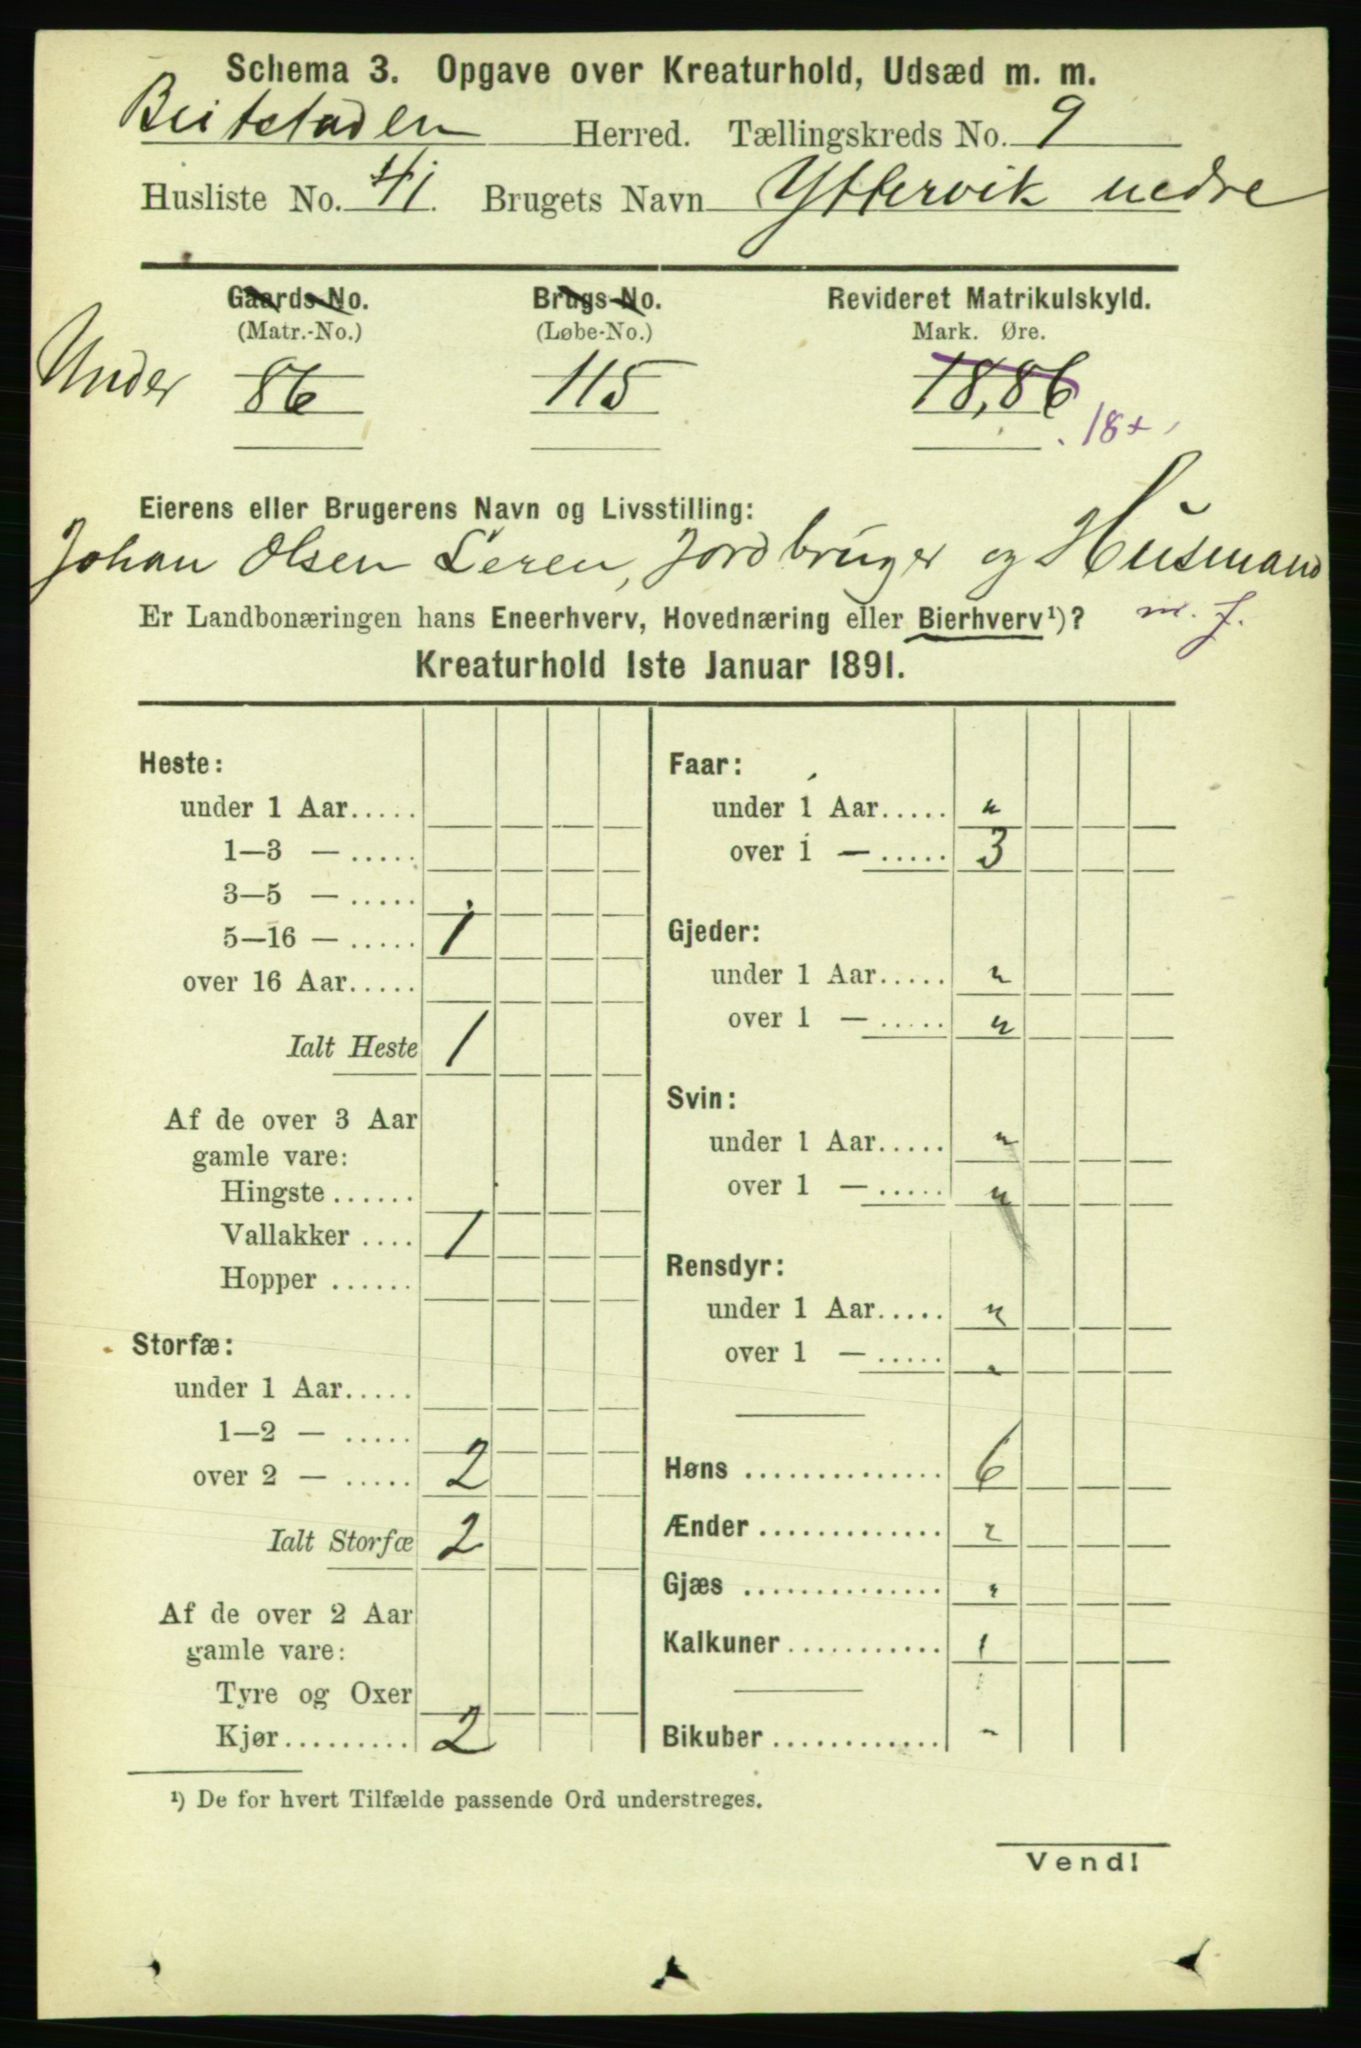 Schema 3. Opgave over Kreaturhold, Udsæd m. m.
Beitstaden Herred. Tællingskreds No. 9
Husliste No. 41. Brugets Navn Yttervik nedre
Gaards-No. Brugs-No. Revideret Matrikulskyld.
(Matr.-No.) (Løbe-No.) Mark. Øre.
Under 86 115 18,86
18+
Eierens eller Brugerens Navn og Livsstilling:
Johan Olsen Leren, Jordbruger og Husmand
Er Landbonæringen hans Eneerhverv, Hovednæring eller Bierhverv¹)? m. J.
Kreaturhold 1ste Januar 1891.
Heste:
under 1 Aar.....
1—3 — .....
3—5 — .....
5—16 — ..... 1
over 16 Aar.....
Ialt Heste 1
Af de over 3 Aar
gamle vare:
Hingste ......
Vallakker .... 1
Hopper ......
Storfæ:
under 1 Aar.....
1—2 — .....
over 2 — ..... 2
Ialt Storfæ 2
Af de over 2 Aar
gamle vare:
Tyre og Oxer
Kjør......... 2
Faar:
under 1 Aar..... "
over 1 — ..... 3
Gjeder:
under 1 Aar..... "
over 1 — ..... "
Svin:
under 1 Aar..... "
over 1 — ..... "
Rensdyr:
under 1 Aar..... "
over 1 — ..... "
Høns .............. 6
Ænder ............. "
Gjæs .............. "
Kalkuner........... 1
Bikuber ............ "
¹) De for hvert Tilfælde passende Ord understreges.
Vend!